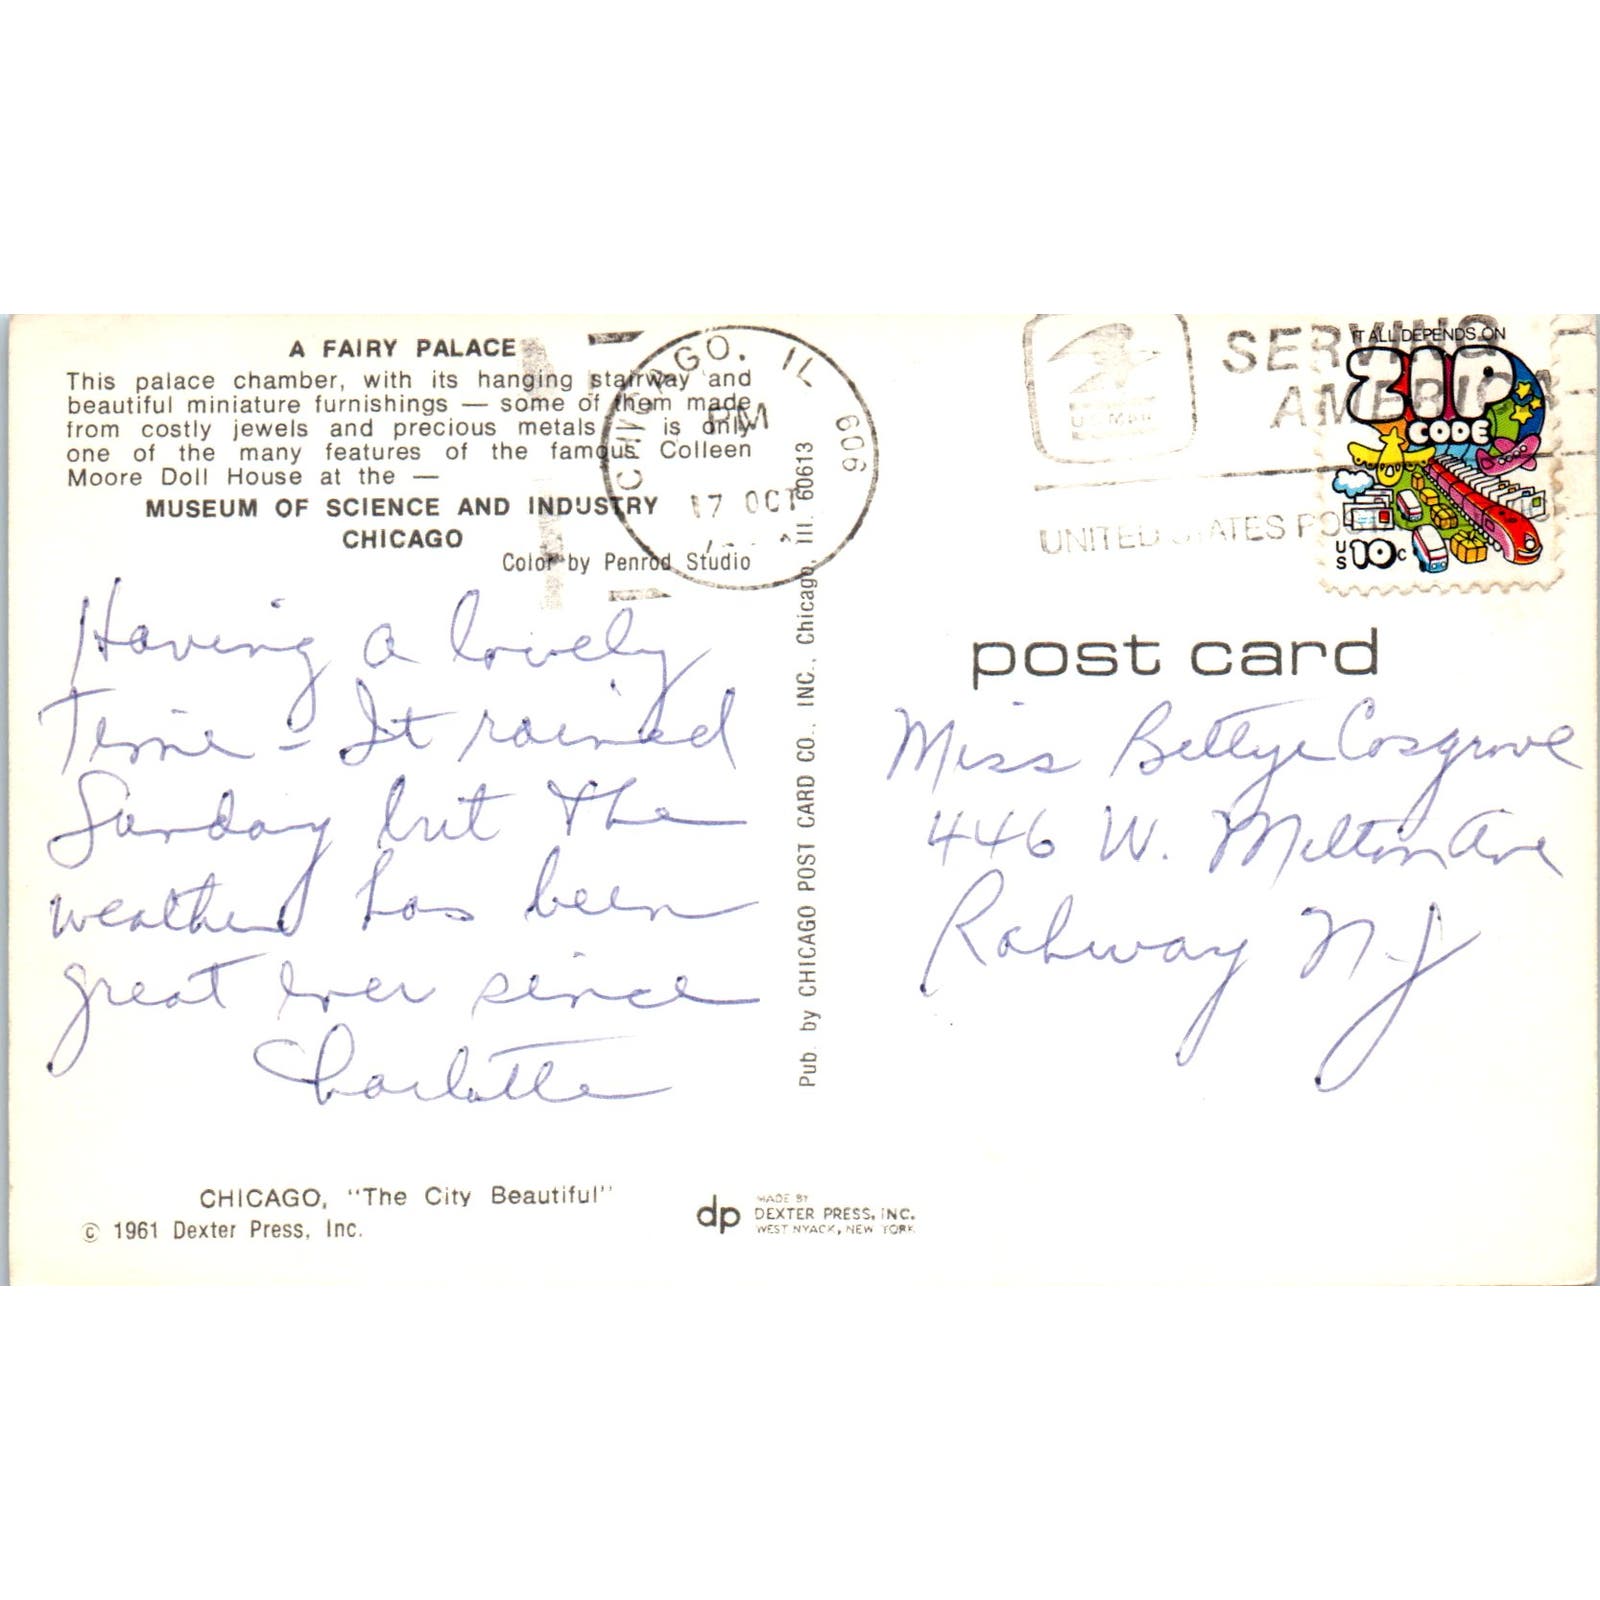 A FAIRY PALACE
This palace chamber, with its hanging stairway and
beautiful miniature furnishings — some of them made
from costly jewels and precious metals — is only
one of the many features of the famous Colleen
Moore Doll House at the —
MUSEUM OF SCIENCE AND INDUSTRY
CHICAGO
Color by Penrod Studio
Having a lovely
Time - It rained
Sunday but the
weather has been
great ever since
Charlotte
CHICAGO, "The City Beautiful"
© 1961 Dexter Press, Inc.
Pub. by CHICAGO POST CARD CO., INC., Chicago, Ill. 60613
dp
MADE BY
DEXTER PRESS, INC.
WEST NYACK, NEW YORK
CHICAGO, IL 606
PM
17 OCT
U.S. MAIL
SERVING
AMERICA
UNITED STATES
IT ALL DEPENDS ON
ZIP
CODE
US 10c
post card
Miss Bettye Cosgrove
446 W. Milton Ave
Rahway N.J